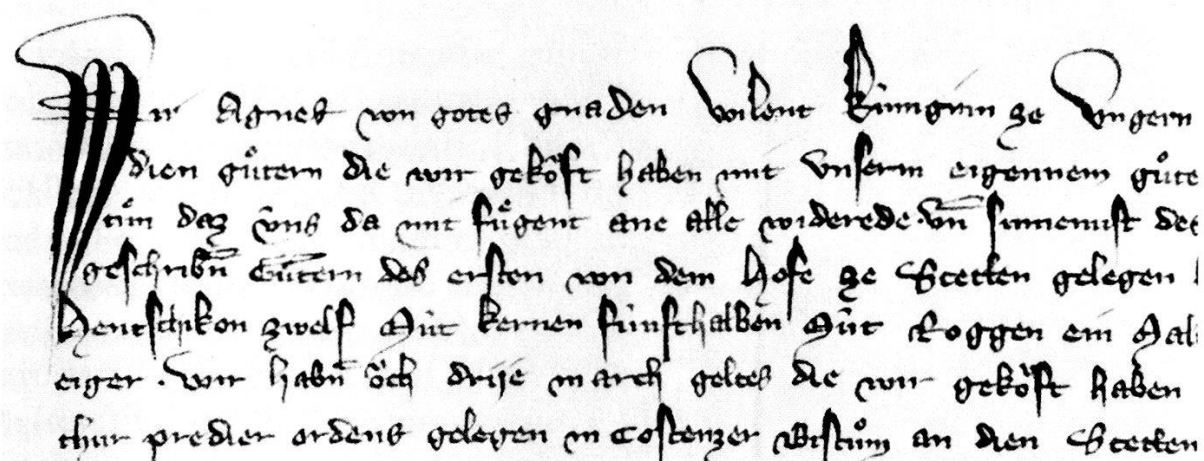 Wir Agnes von gotes gnaden wilent Kúniginn ze Vngern
dien gůtern die wir gekôft haben mit vnserm eigennem gůte
tůn daz vns da mit fůgent ane alle widerede. vn̄ sunemist der
geschribn̄ Gůtern des ersten von dem Hofe ze Stetten gelegen
Hentschikon zwelf Mút kernen fúnfthalben Mút Roggen ein Mal
eiger. wir habn̄ ôch drije march geltes die wir gekôft haben
thur predier ordens gelegen in Costenzer Bistům an dien Stetten